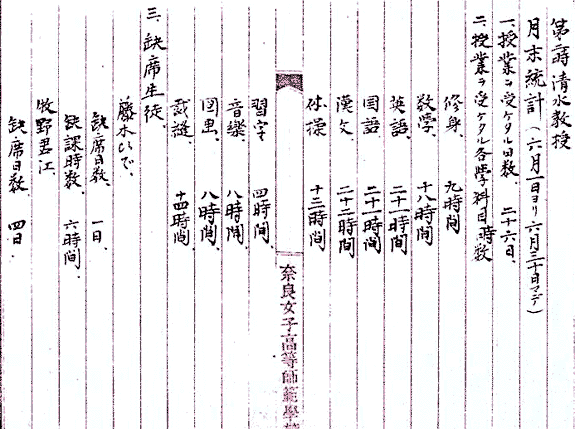 清水教授
月末統計(六月一日ヨリ六月三十日マデ)
一、授業ヲ受ケタル日数、二十六日、
二、授業ヲ受ケタル各學科目時数
修身、九時間
数學、十八時間
英語、二十一時間
国語、二十一時間
漢文、二十二時間
体操、十二時間
奈良女子高等師範學
習字、四時間、
音樂、八時間、
図画、八時間、
裁縫、十四時間、
三、缺席生徒、
藤木いで、
缺席日数、一日、
缺課時数、六時間、
牧野君江
缺席日数、四日、